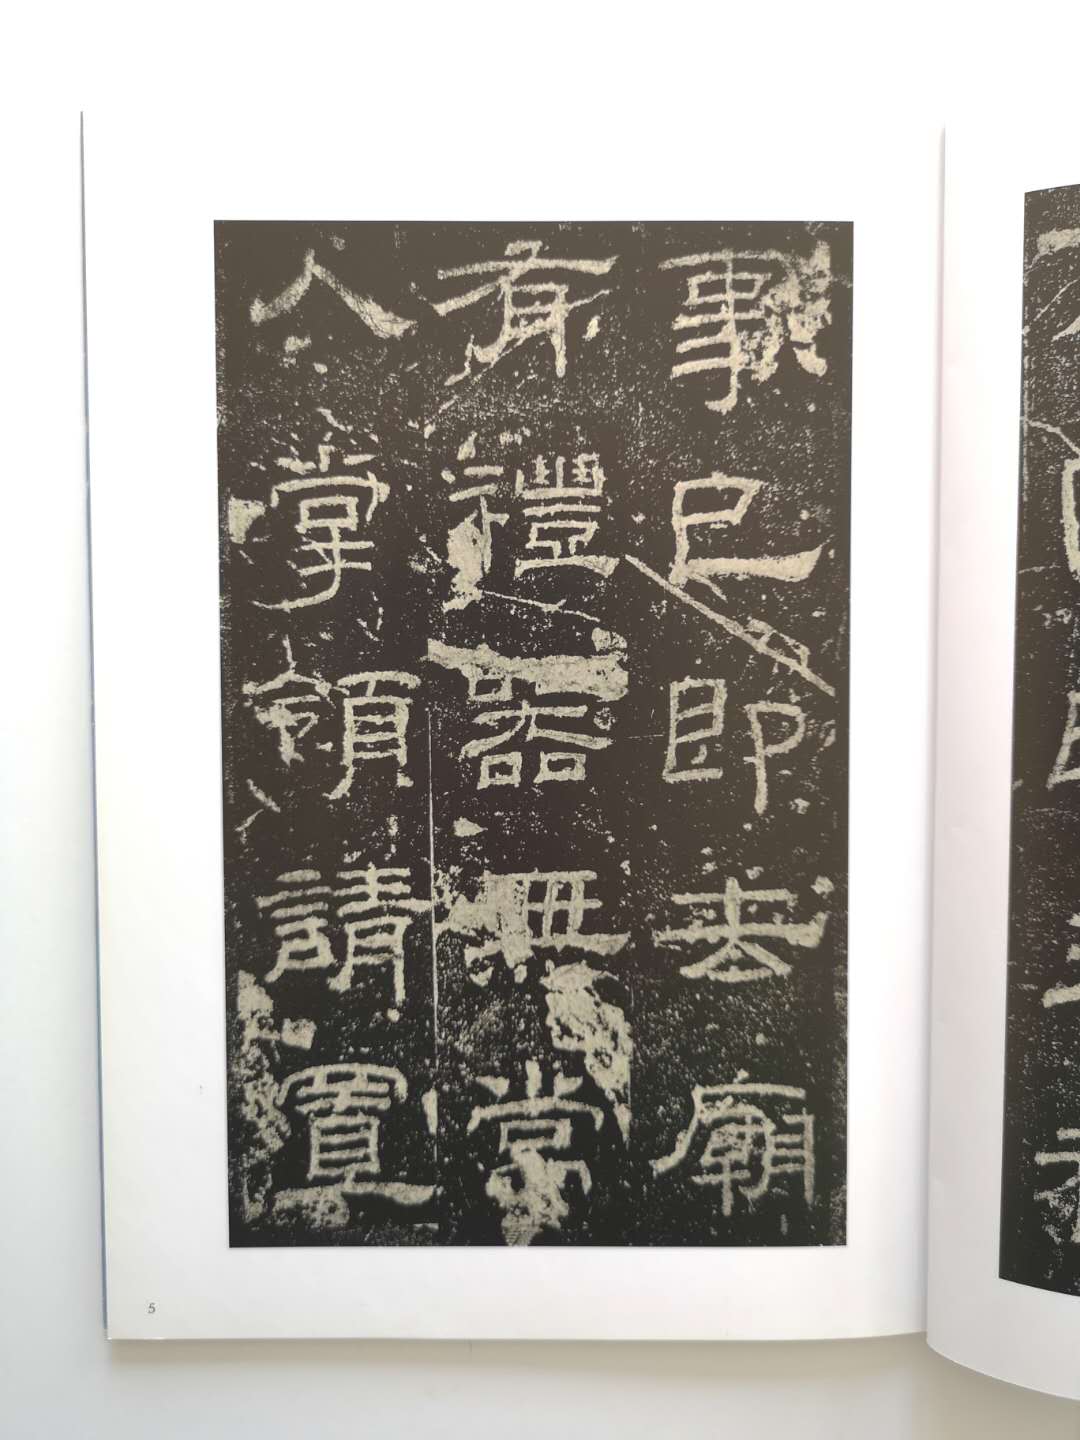 事已即去廟
有禮器無常
人掌領請置
5